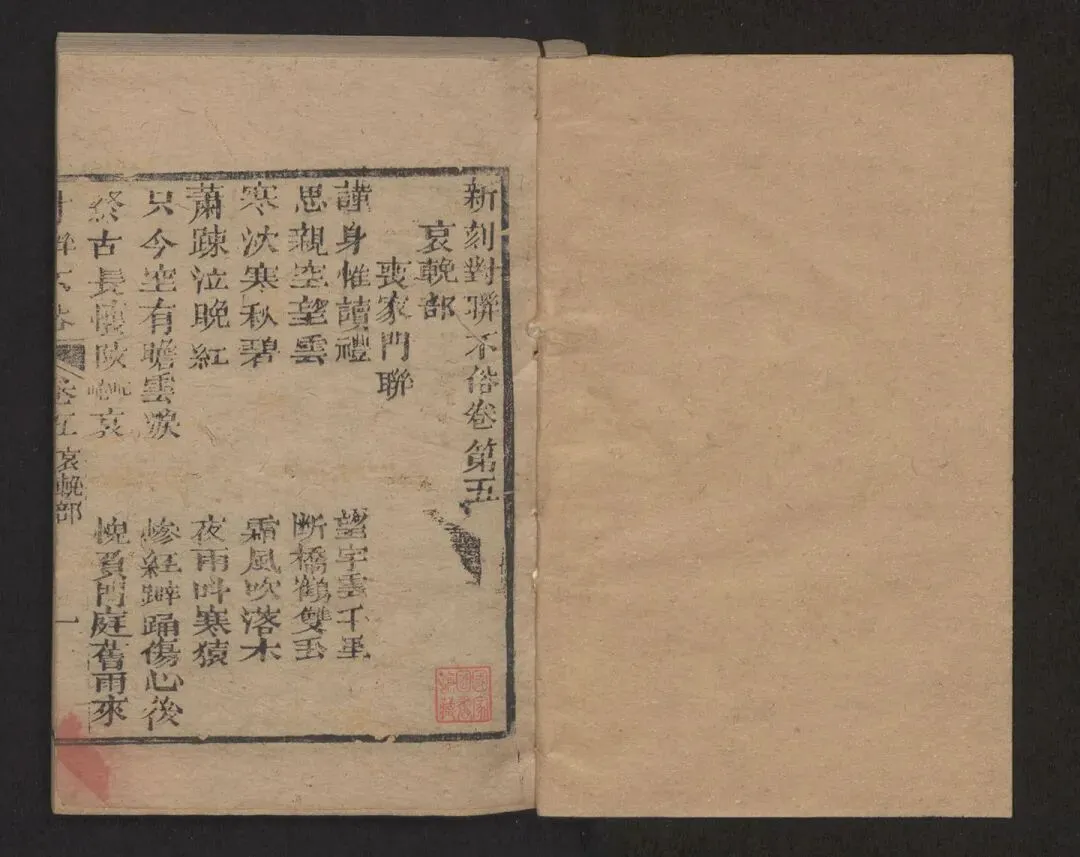 新刻對聯不俗卷第五
哀輓部
喪家門聯
謹身惟讀禮 望宇雲千里
思親空望雲 断橋鶴雙
寒沈寒秋碧 霜風吹落木
蕭踈泣晚紅 夜雨呌寒猿
只今空有瞻雲淚 慘經擗踊傷心後
終古長懷陟屺哀 愧負門庭舊雨來
對聯不俗 卷五 哀輓部 一